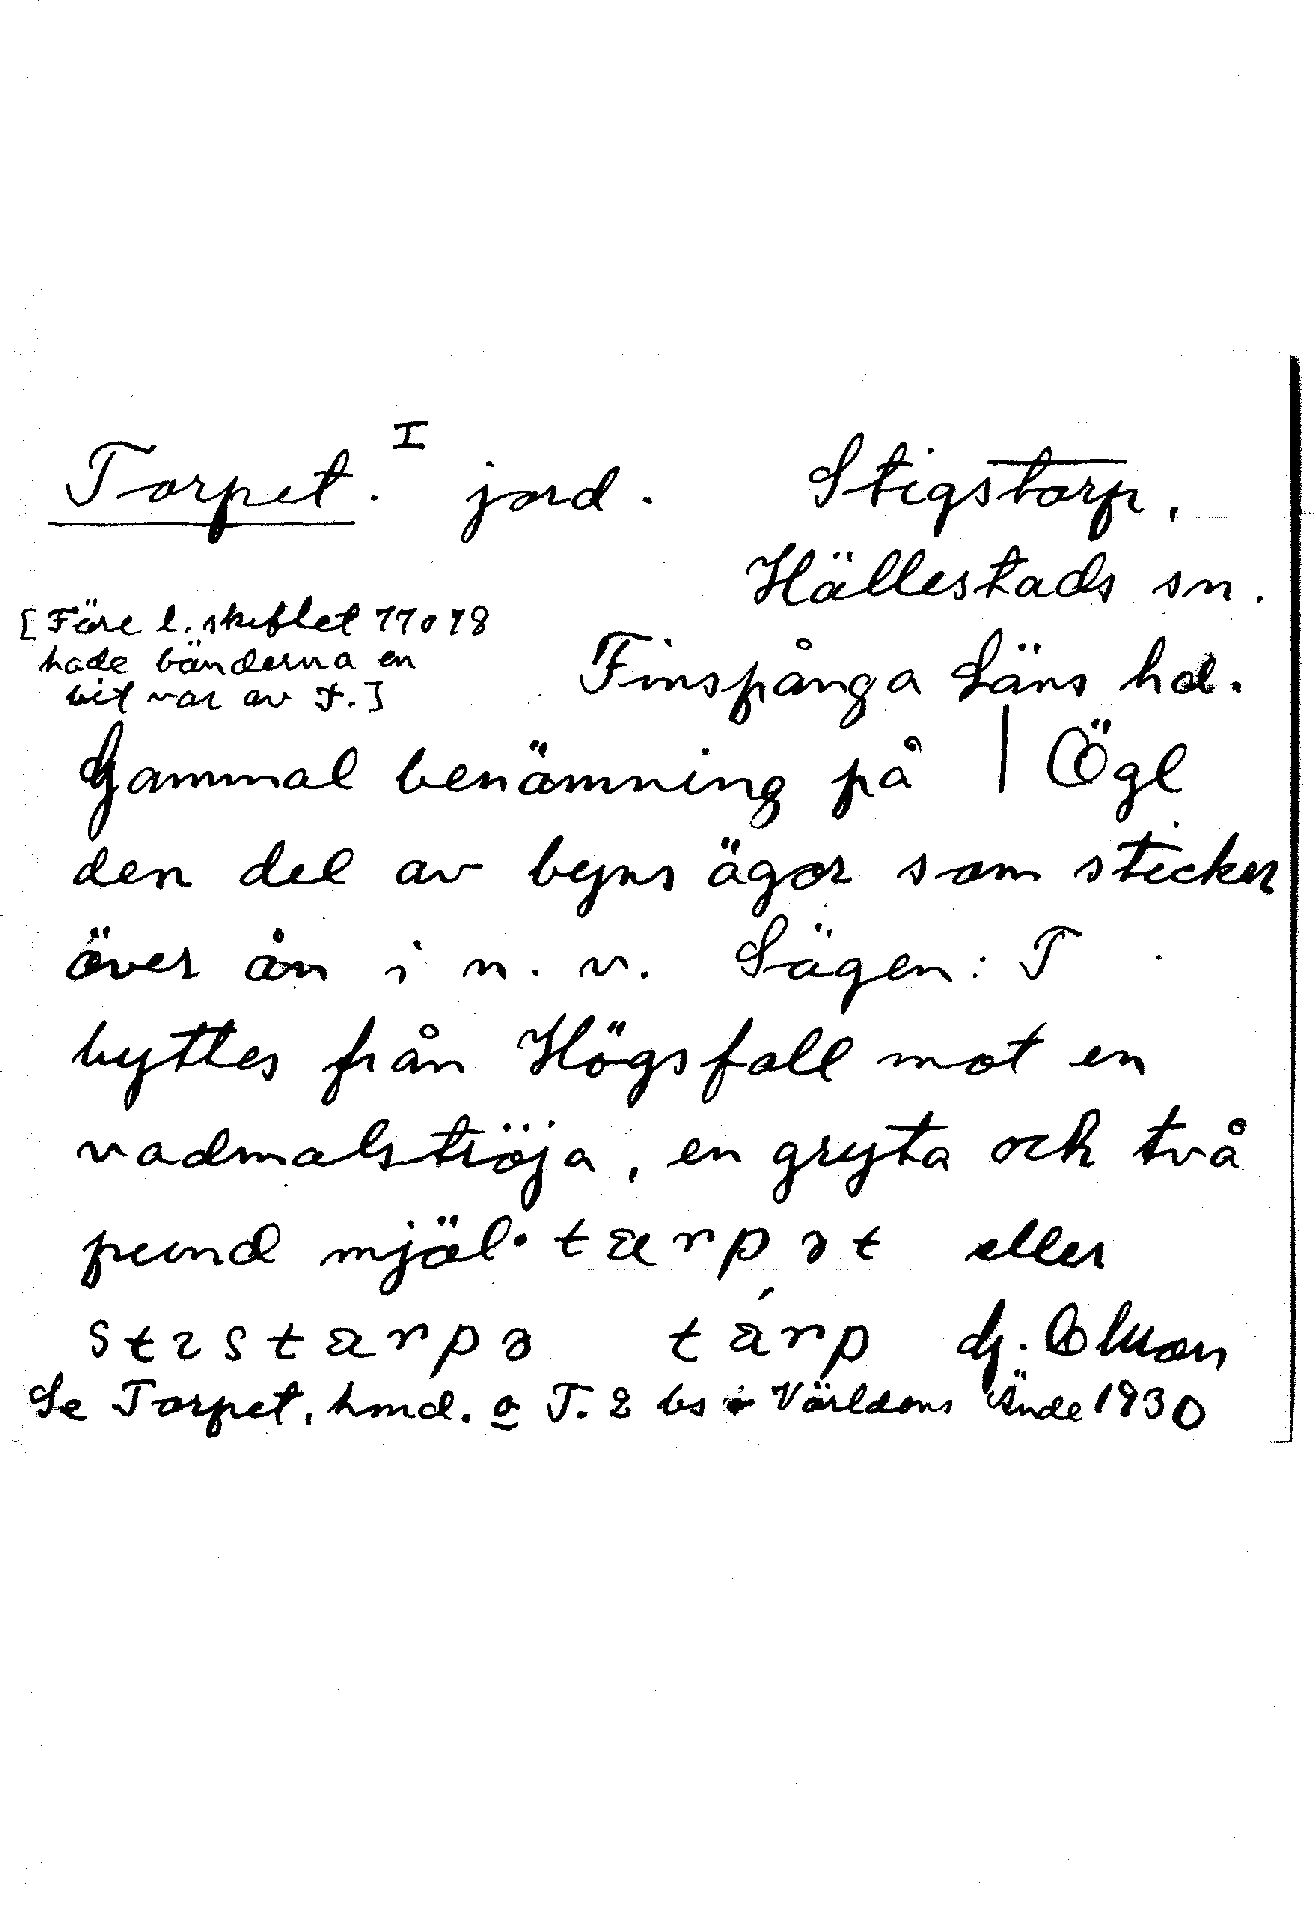 Torpet. I jord. Stigstorp,
Hällestads sn.
[Före l. skiftet 77 o 78
hade bönderna en
bit var av T.]
Finspånga Läns hd.
Gammal benämning på | Ögl
den del av byns ägor som sticker
över ån i n. v. Sägen: T
byttes från Högsfall mot en
vadmalströja, en gryta och två
pund mjöl. tarpət eller
stistarpə tarp G. Olsson
Se Torpet, hmd. o T. 2 bs i Världens Ände 1930